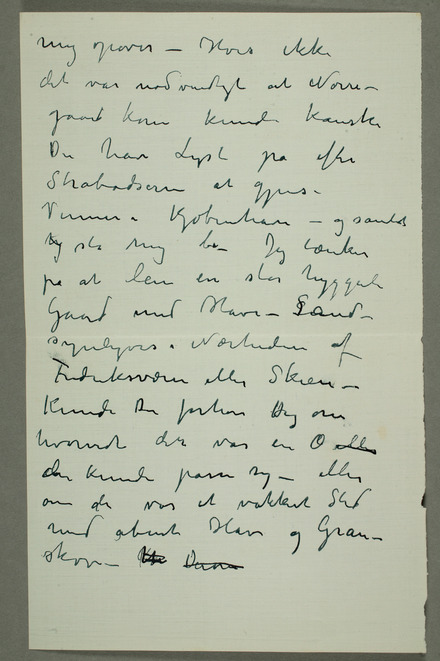 mig opover – Hvis ikke
det var nødvendigt at Nørre-
gaard kom kunde kanske
Du have Lyst på efter
Strabadserne at
Venner i Kjøbenhavn – og samtidig
stå mig bi – Jeg tænker
på at leie en stor hyggelig
Gaard med Have – Sand-
synligvis i Nærheden af
Fredriksværn eller Skien –
Kunde Du forhøre Dig om
hvorvidt der var en O eller
der kunde passe sig – eller
om der var et vakkert Sted
med åbent Hav og Gran-
skov –